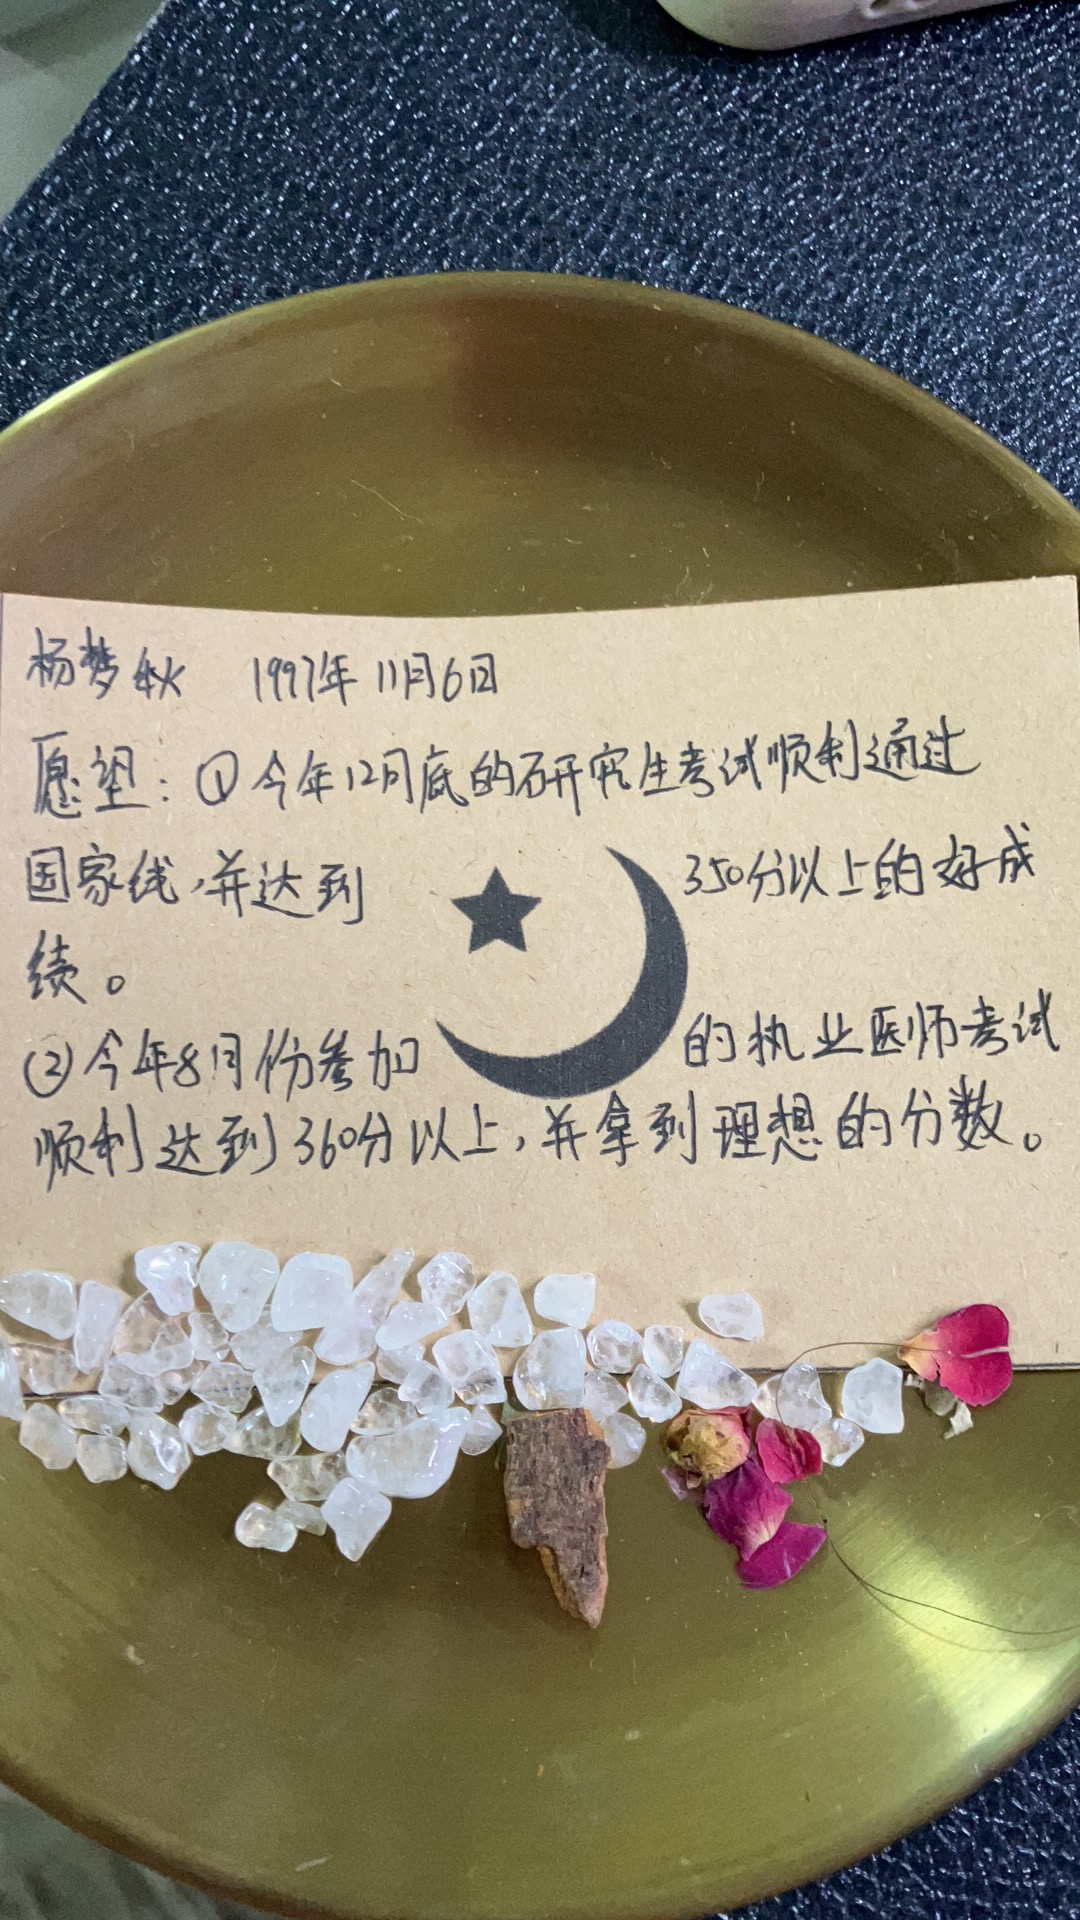 杨梦秋 1997年11月6日
愿望：①今年12月底的研究生考试顺利通过
国家线，并达到 350分以上的好成
绩。
②今年8月份参加 的执业医师考试
顺利达到360分以上，并拿到理想的分数。